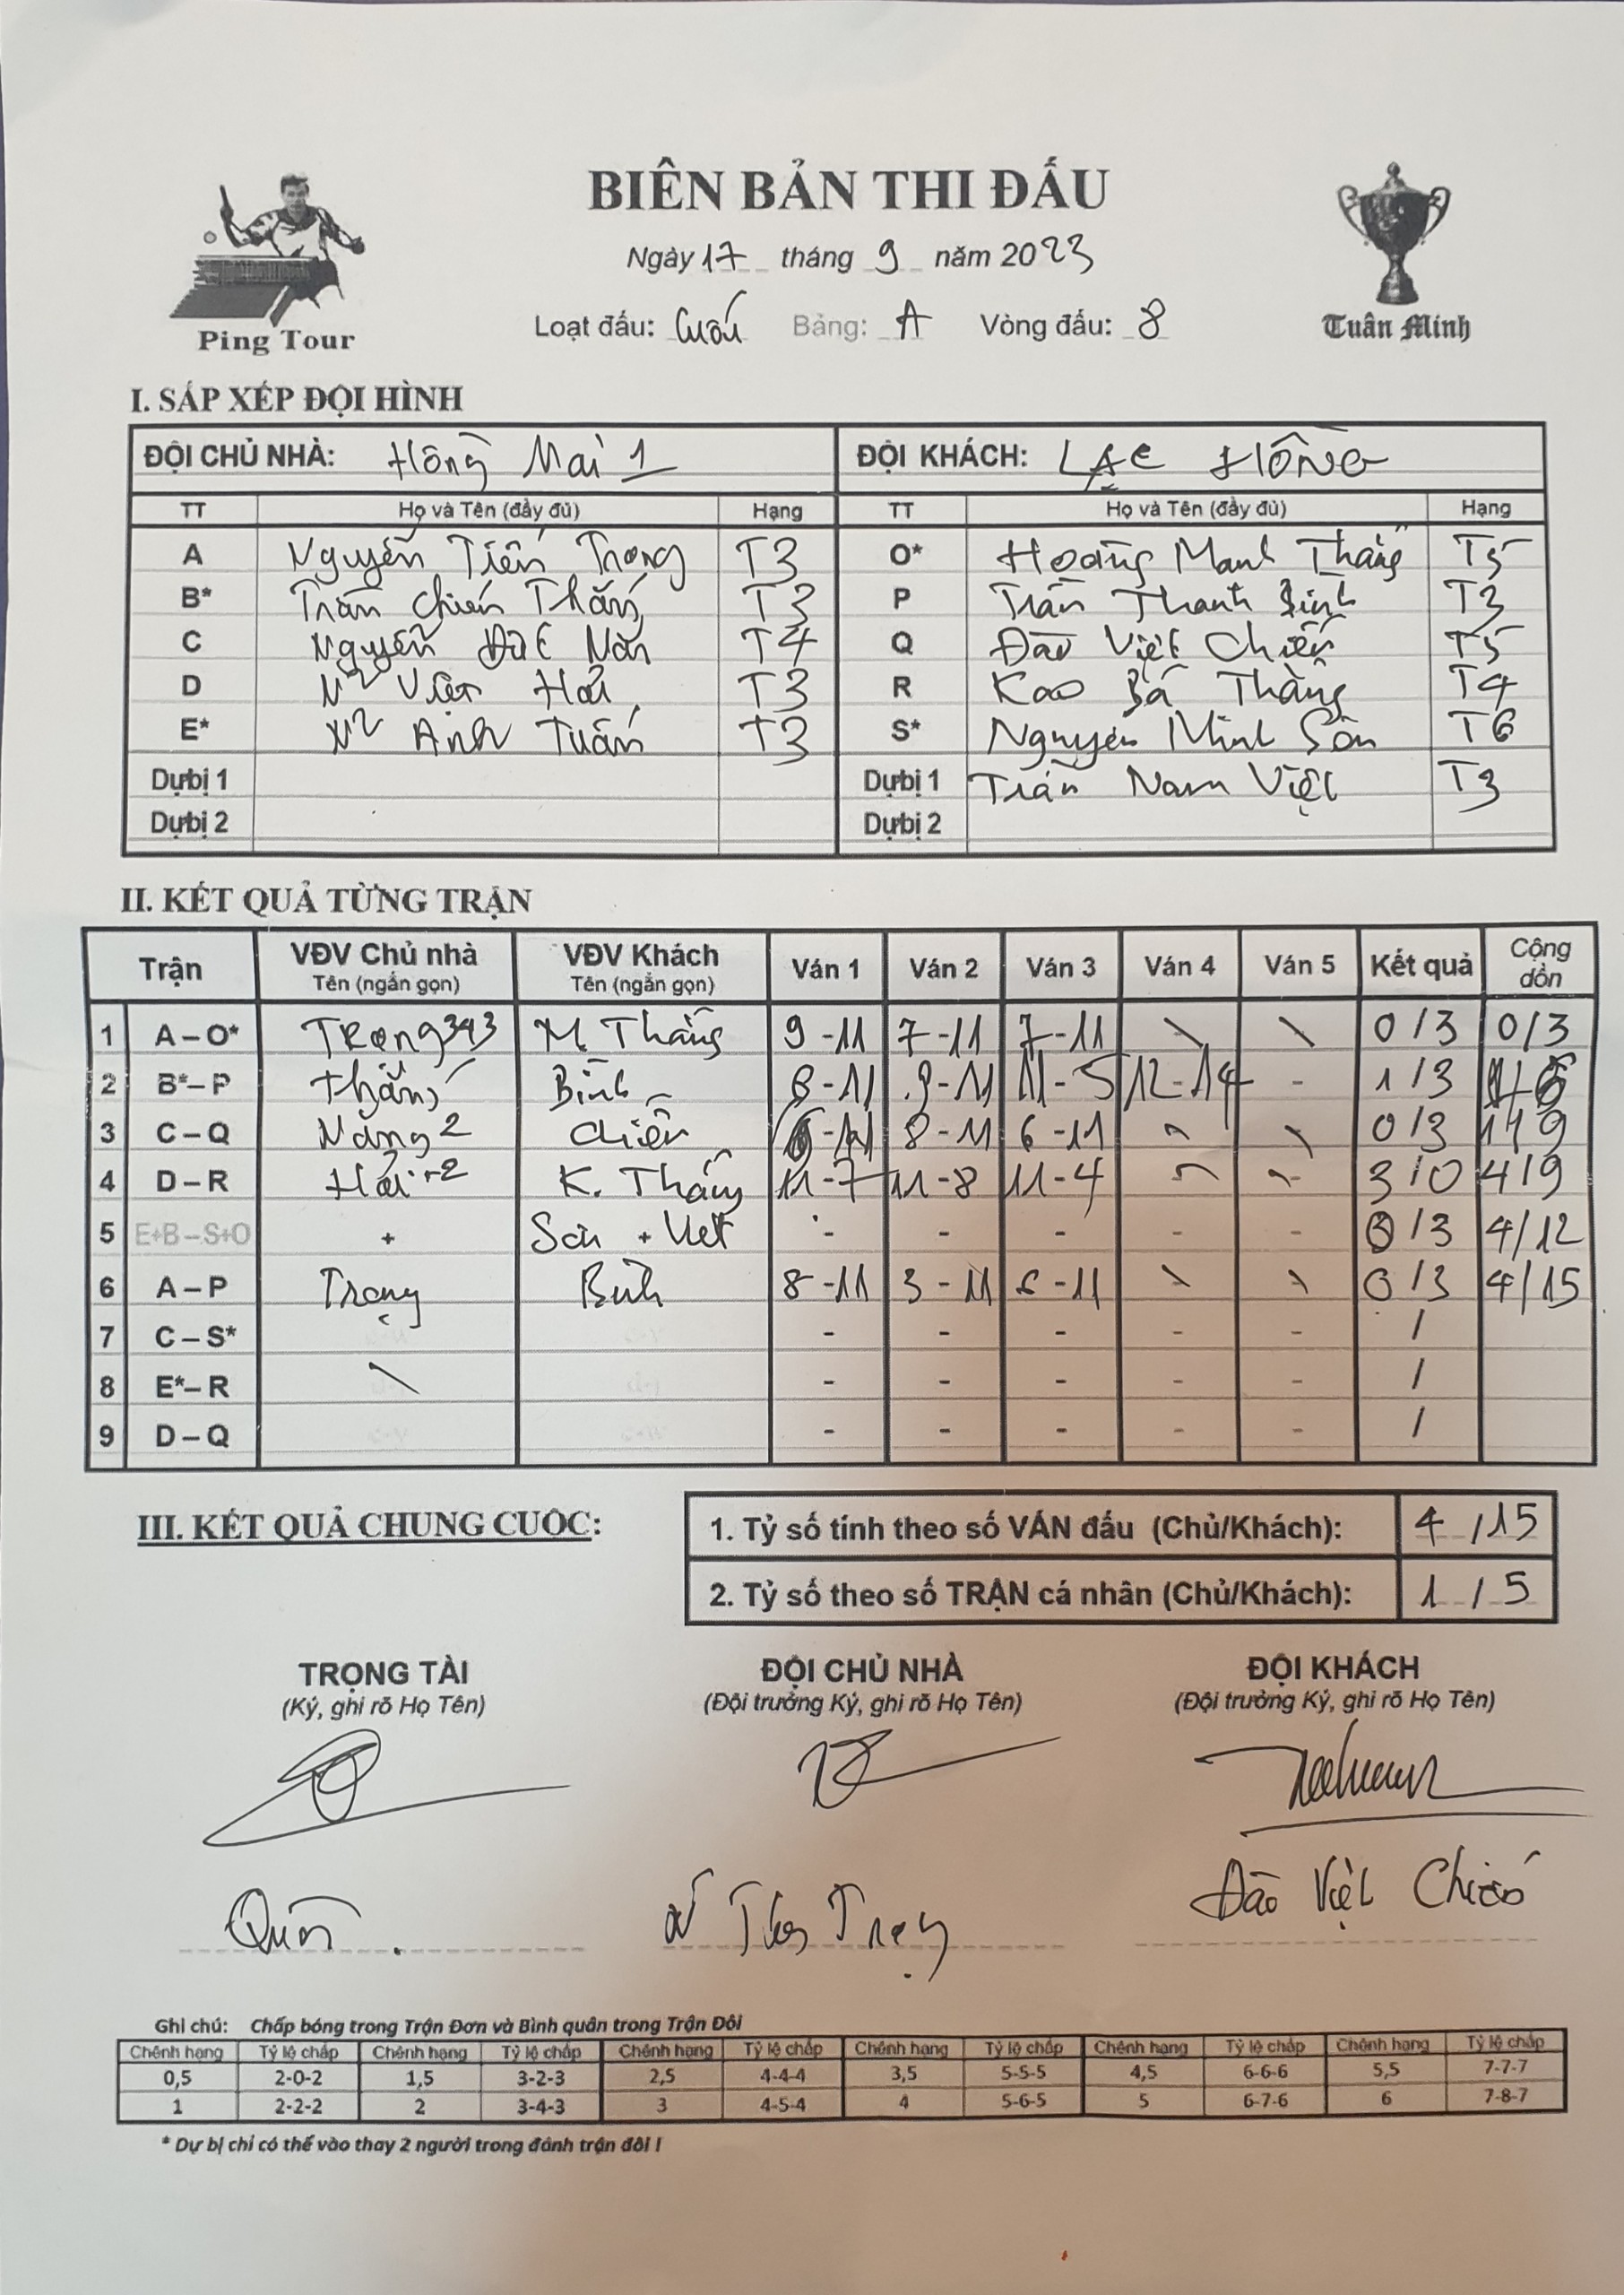 BIÊN BẢN THI ĐẤU
Ngày 17 tháng 9 năm 2023
Ping Tour
Loạt đấu: Cuối Bảng: A Vòng đấu: 8
Tuân Minh
I. SẮP XẾP ĐỘI HÌNH
ĐỘI CHỦ NHÀ: Hồng Mai 1 ĐỘI KHÁCH: LẠC HỒNG
TT Họ và Tên (đầy đủ) Hạng TT Họ và Tên (đầy đủ) Hạng
A Nguyễn Tiến Trọng T3 O* Hoàng Mạnh Thắng T5
B* Trần Chiến Thắng T3 P Trần Thanh Bình T3
C Nguyễn Đức T4 Q Đào Việt Chiến T5
D Hải T3 R Kao Bá Thắng T4
E* Anh Tuấn T3 S* Nguyễn Minh Sơn T6
Dự bị 1 Dự bị 1 Trần Nam Việt T3
Dự bị 2 Dự bị 2
II. KẾT QUẢ TỪNG TRẬN
Trận VĐV Chủ nhà Tên (ngắn gọn) VĐV Khách Tên (ngắn gọn) Ván 1 Ván 2 Ván 3 Ván 4 Ván 5 Kết quả Cộng dồn
1 A – O* Trọng 343 M. Thắng 9 -11 7 -11 7 -11 \ \ 0 / 3 0/3
2 B* – P Thắng Bình 8 - 11 9 - 11 11 - 5 12 - 14 - 1 / 3
3 C – Q Chiến 8 - 11 6 - 11 \ 0 / 3 1/9
4 D – R Hải K. Thắng 11 - 7 11 - 8 11 - 4 3 / 0 4/9
5 E+B – S+O + Sơn + Việt - - - - - 0 / 3 4/12
6 A – P Trọng Bình 8 -11 3 - 11 6 - 11 \ \ 0 / 3 4/15
7 C – S* - - - - - /
8 E* – R \ - - - - - /
9 D – Q - - - - - /
III. KẾT QUẢ CHUNG CUỘC:
1. Tỷ số tính theo số VÁN đấu (Chủ/Khách): 4 / 15
2. Tỷ số theo số TRẬN cá nhân (Chủ/Khách): 1 / 5
TRỌNG TÀI ĐỘI CHỦ NHÀ ĐỘI KHÁCH
(Ký, ghi rõ Họ Tên) (Đội trưởng Ký, ghi rõ Họ Tên) (Đội trưởng Ký, ghi rõ Họ Tên)
Trọng Đào Việt Chiến
Ghi chú: Chấp bóng trong Trận Đơn và Bình quân trong Trận Đôi
Chênh hạng Tỷ lệ chấp Chênh hạng Tỷ lệ chấp Chênh hạng Tỷ lệ chấp Chênh hạng Tỷ lệ chấp Chênh hạng Tỷ lệ chấp Chênh hạng Tỷ lệ chấp
0,5 2-0-2 1,5 3-2-3 2,5 4-4-4 3,5 5-5-5 4,5 6-6-6 5,5 7-7-7
1 2-2-2 2 3-4-3 3 4-5-4 4 5-6-5 5 6-7-6 6 7-8-7
* Dự bị chỉ có thể vào thay 2 người trong đánh trận đôi !